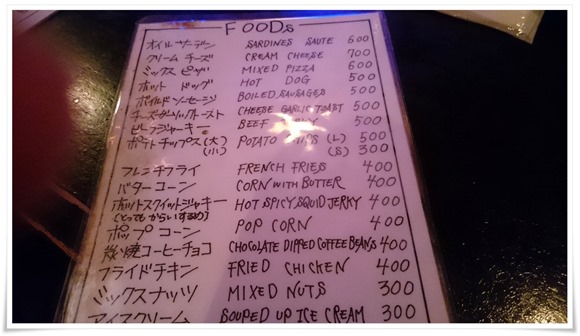 FOODs
オイルサーデン SARDINES SAUTE 600
クリームチーズ CREAM CHEESE 700
ミックスピザ MIXED PIZZA 600
ホットドッグ HOT DOG 500
ボイルドソーセージ BOILED SAUSAGES 500
チーズガーリックトースト CHEESE GARLIC TOAST 500
ビーフジャーキー BEEF 500
ポテトチップス(大) POTATO CHIPS (L) 500
(小) (S) 300
フレンチフライ FRENCH FRIES 400
バターコーン CORN WITH BUTTER 400
ホットスクイットジャキー HOT SPICY SQUID JERKY 400
(とってもからいするめ)
ポップコーン POP CORN 400
炭焼コーヒーチョコ CHOCOLATE DIPPED COFFEE BEANS 400
フライドチキン FRIED CHICKEN 400
ミックスナッツ MIXED NUTS 300
アイスクリーム SOUPED UP ICE CREAM 300